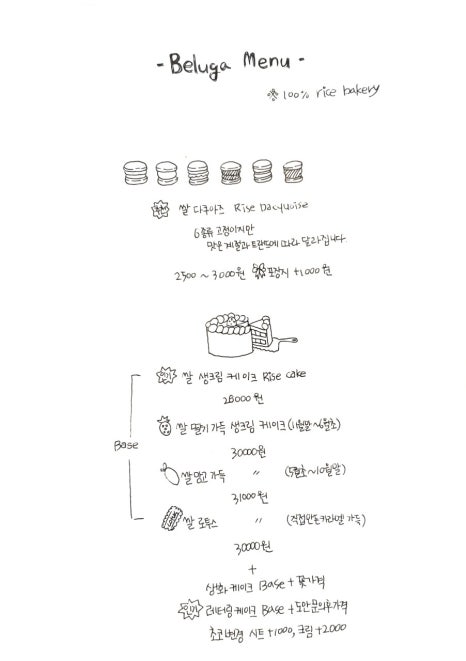 - Beluga Menu -
※ 100% rice bakery
인기 쌀 다쿠아즈 Rise Dacquoise
6종류 고정이지만
맛은 계절과 트랜드에 따라 달라집니다.
2500 ~ 3000원 포장지 +1000원
인기 쌀 생크림 케이크 Rise cake
28000원
쌀 딸기 가득 생크림 케이크 (11월말~6월초)
30000원
Base
쌀 망고 가득 〃 (5월초~10월말)
31000원
쌀 로투스 〃 (직접만든카라멜 가득)
30000원
+
생화 케이크 Base + 꽃가격
인기 레터링케이크 Base + 도안 문의후 가격
초코변경 시트 +1000, 크림 +2000